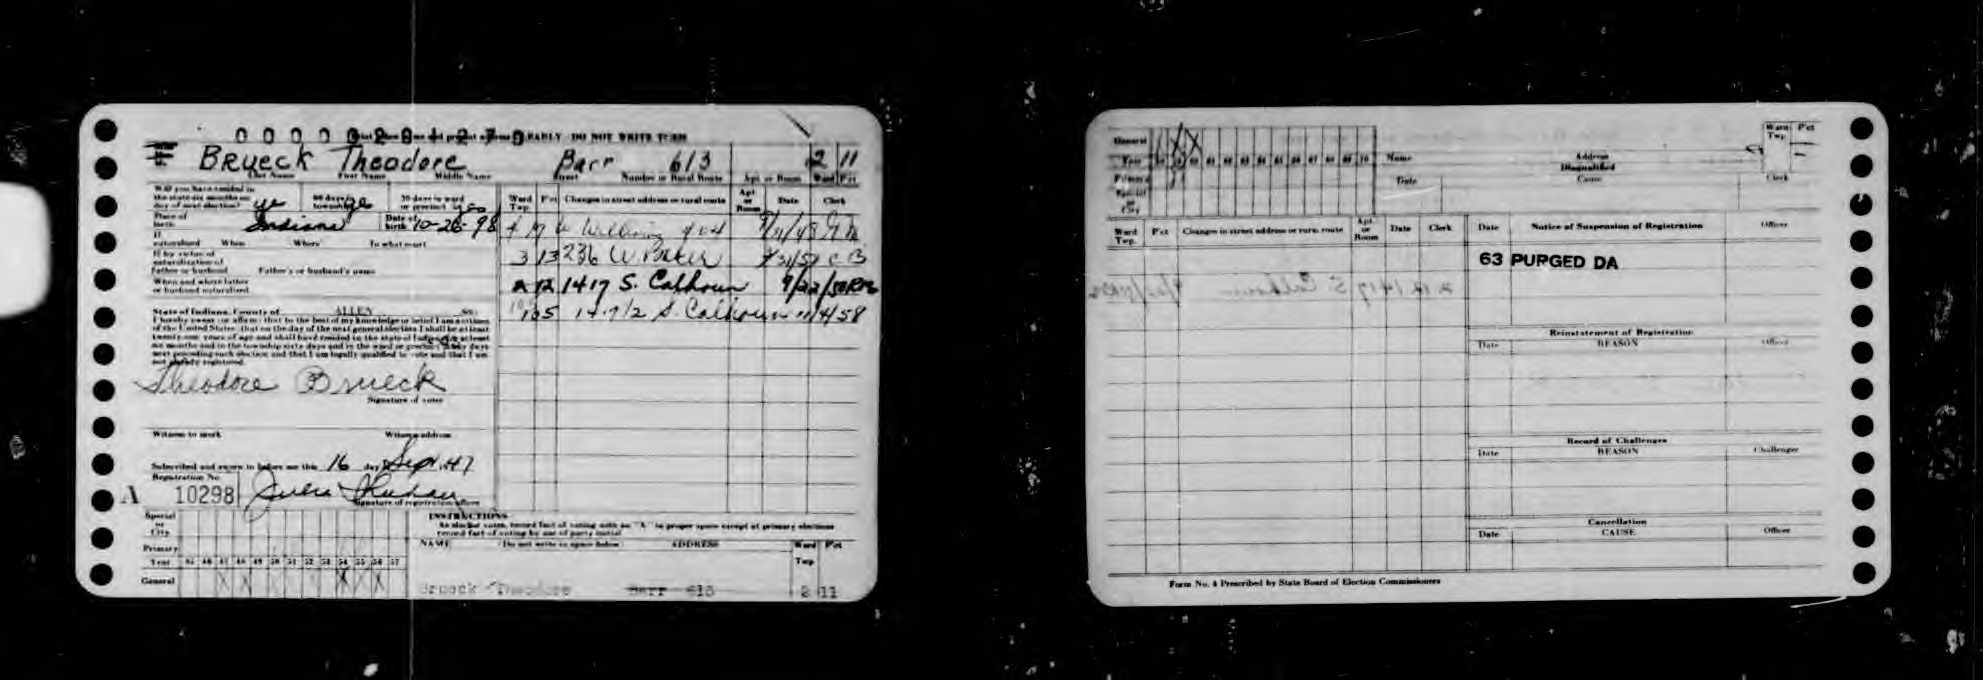 0 0 0 0 0 2 8 1 2 7 0 EARLY DO NOT WRITE
BRUECK Theodore Barr 613 2 11
Last Name First Name Middle Name Street Number or Rural Route Apt. or Room Ward Pct
Will you have resided in
the state six months on 60 days in 30 days in ward
day of next election? yes township yes or precinct yes
Place of birth Indiana Date of birth 10-26-98
If naturalized When Where To what court
If by virtue of
naturalization of
father or husband Father's or husband's name
When and where father
or husband naturalized
State of Indiana, County of ALLEN SS:
I hereby swear (or affirm) that to the best of my knowledge or belief I am a citizen
of the United States, that on the day of the next general election I shall be at least
twenty-one years of age and shall have resided in the state of Indiana at least
six months and in the township sixty days and in the ward or precinct thirty days
next preceding such election and that I am legally qualified to vote and that I am
not already registered.
Theodore Brueck
Signature of voter
Witness to mark Witness address
Subscribed and sworn to before me this 16 day Sept. 47
Registration No.
A 10298 Julia
Signature of registration officer
Ward Twp. Pct Changes in street address or rural route Apt. or Room Date Clerk
W. Williams 904
3 13 236 W. Baker C B
2 12 1417 S. Calhoun 9/22/50
105 14 7/2 S. Calhoun 11/4/58
Special or City
Primary
Year 45 46 47 48 49 50 51 52 53 54 55 56 57
General X X X X X X
INSTRUCTIONS
As elector votes, record fact of voting with an "X" in proper space except at primary elections
record fact of voting by use of party initial
NAME (Do not write in space below) ADDRESS Ward Twp. Pct
Brueck Theodore Barr 613 2 11
General X X
Year 58 59 60 61 62 63 64 65 66 67 68 69 70
Primary
Special or City
Name Address Ward Twp. P'ct
Disqualified
Date Cause Clerk
Ward Twp. P'ct Changes in street address or rural route Apt. or Room Date Clerk
Date Notice of Suspension of Registration Officer
63 PURGED DA
Reinstatement of Registration
Date REASON Officer
Record of Challenges
Date REASON Challenger
Cancellation
Date CAUSE Officer
Form No. 4 Prescribed by State Board of Election Commissioners